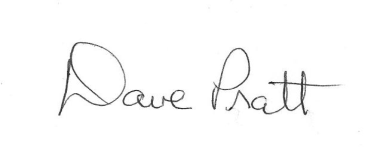 Dave Pratt